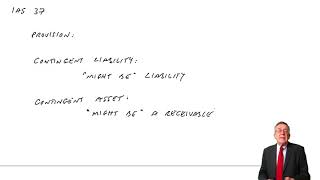 IAS 37
PROVISION:
CONTINGENT LIABILITY:
"MIGHT BE" LIABILITY
CONTINGENT ASSET:
"MIGHT BE" A RECEIVABLE